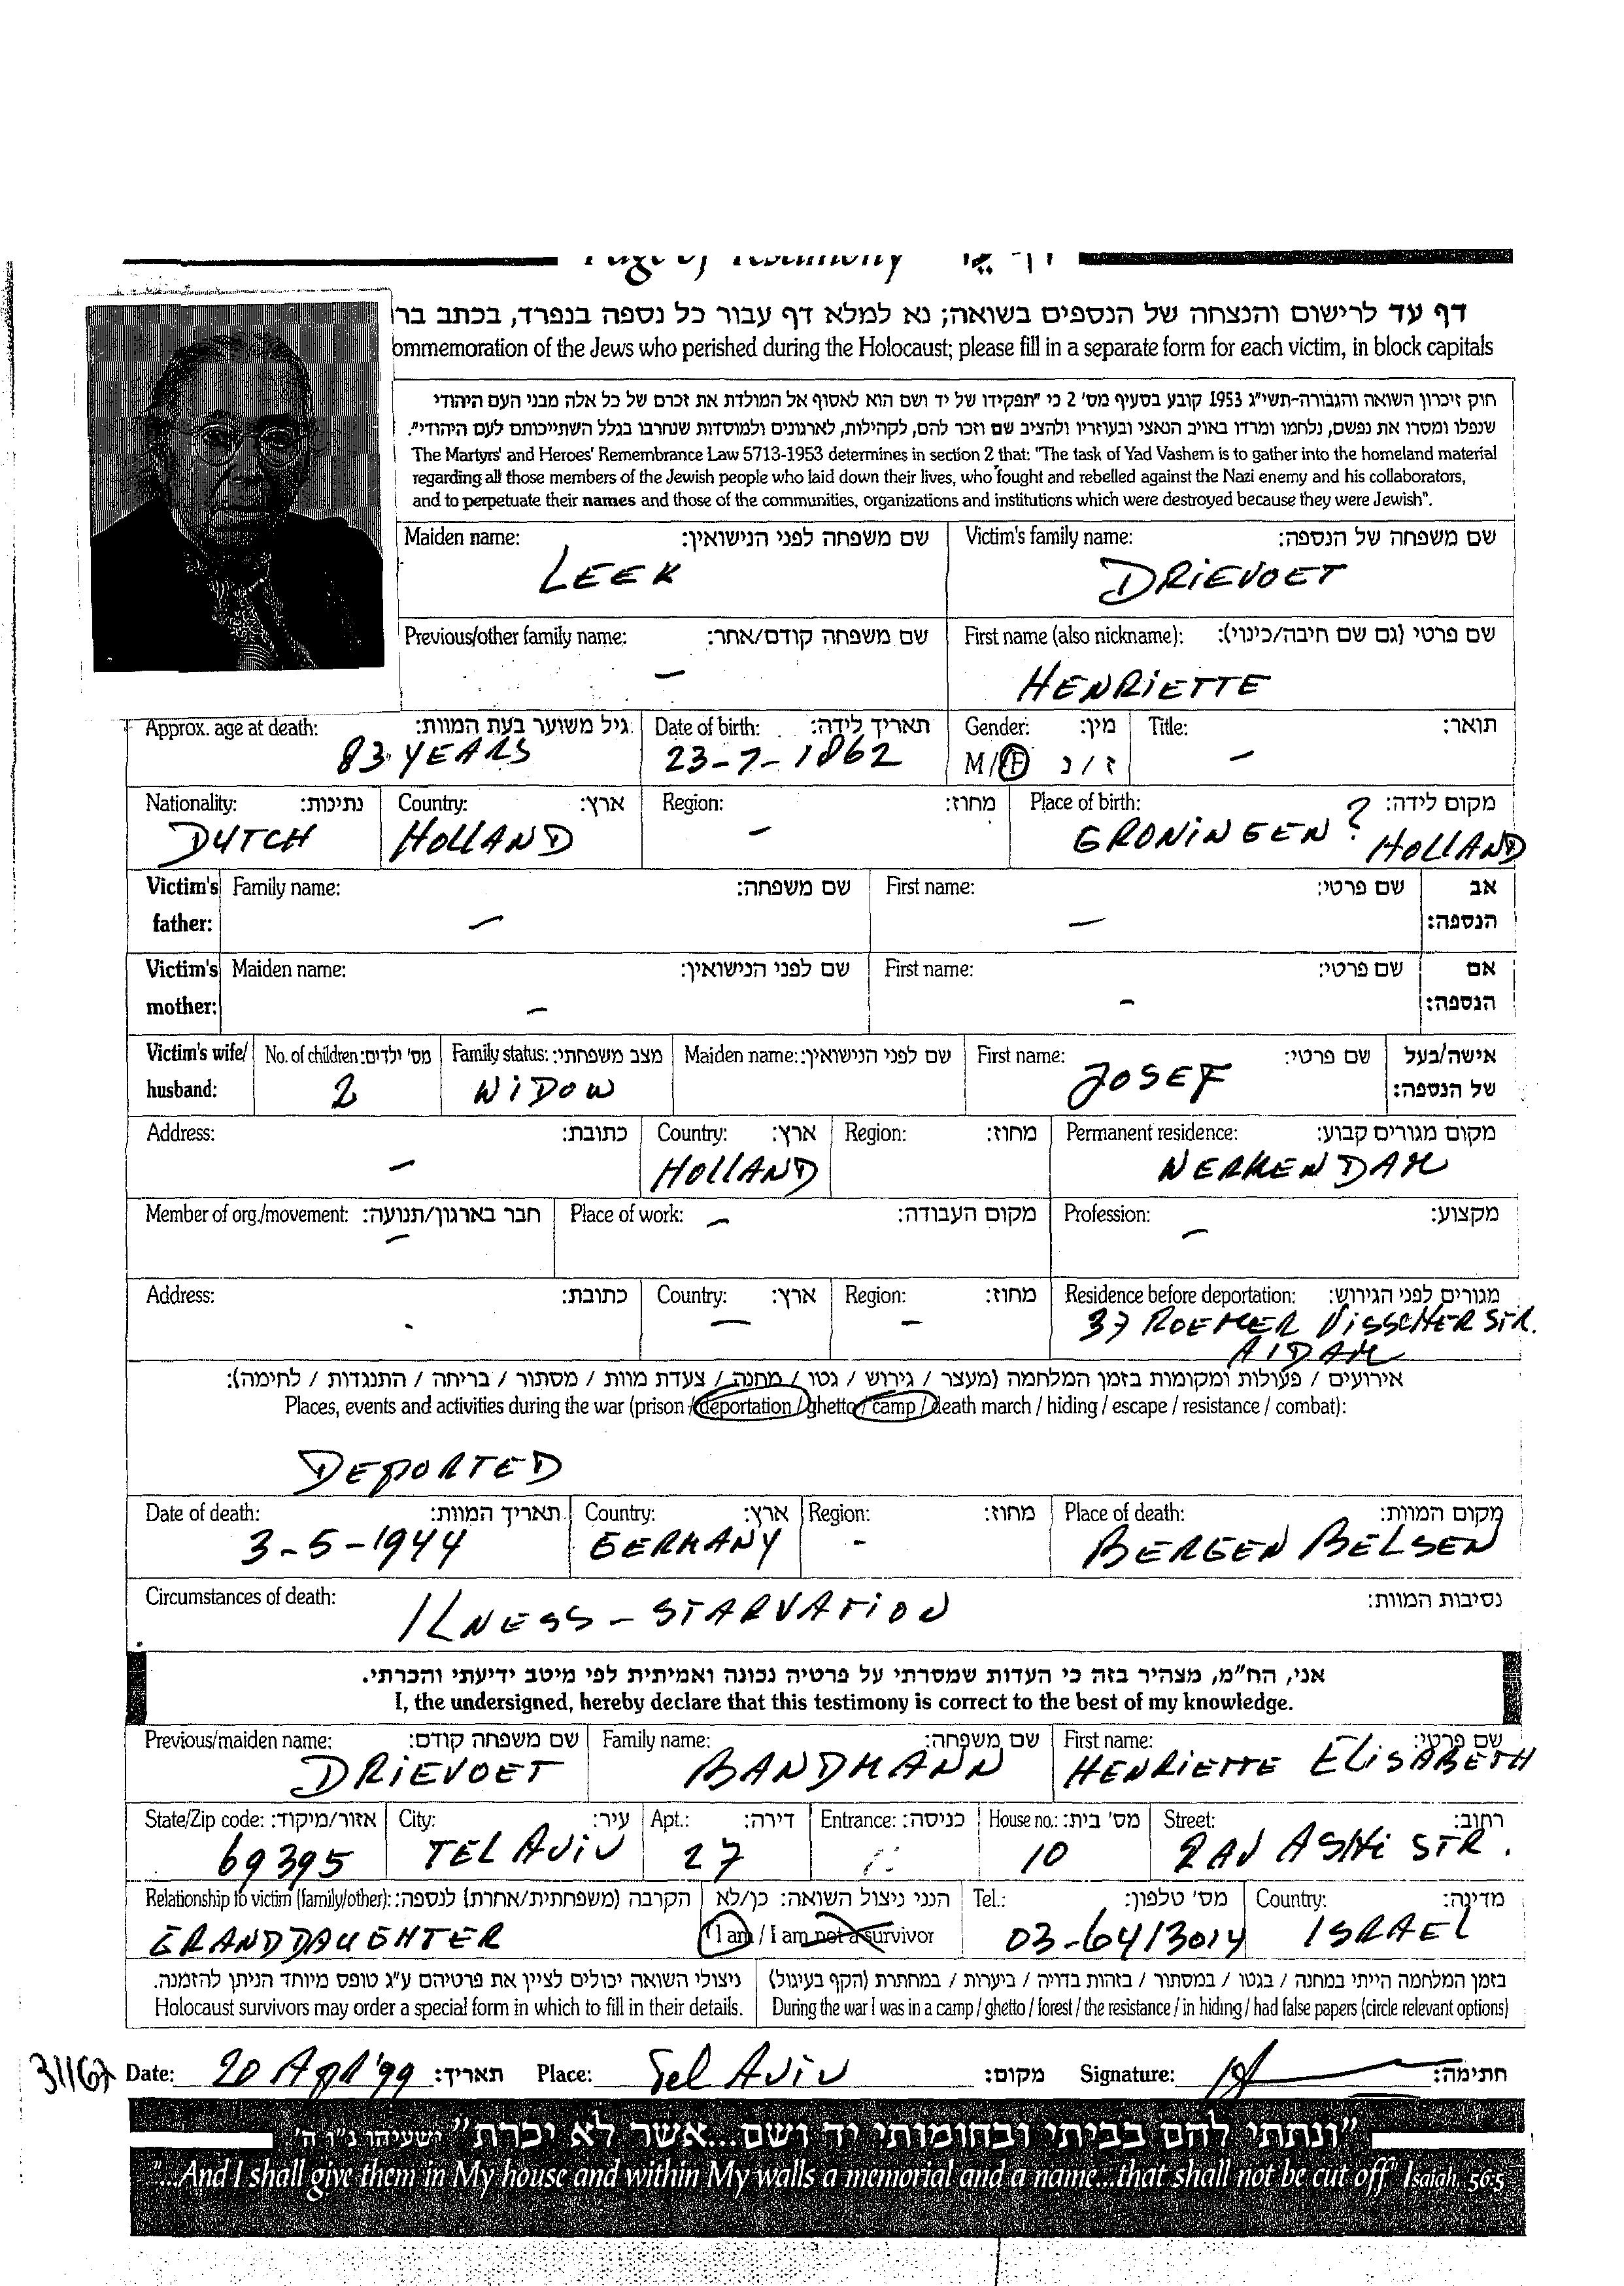 Page of Testimony דף עד
דף עד לרישום והנצחה של הנספים בשואה; נא למלא דף עבור כל נספה בנפרד, בכתב בר
ommemoration of the Jews who perished during the Holocaust; please fill in a separate form for each victim, in block capitals
חוק זיכרון השואה והגבורה-תשי"ג 1953 קובע בסעיף מס' 2 כי "תפקידו של יד ושם הוא לאסוף אל המולדת את זכרם של כל אלה מבני העם היהודי
שנפלו ומסרו את נפשם, נלחמו ומרדו באויב הנאצי ובעוזריו ולהציב שם וזכר להם, לקהילות, לארגונים ולמוסדות שנחרבו בגלל השתייכותם לעם היהודי".
The Martyrs' and Heroes' Remembrance Law 5713-1953 determines in section 2 that: "The task of Yad Vashem is to gather into the homeland material
regarding all those members of the Jewish people who laid down their lives, who fought and rebelled against the Nazi enemy and his collaborators,
and to perpetuate their names and those of the communities, organizations and institutions which were destroyed because they were Jewish".
Maiden name: שם משפחה לפני הנישואין: Victim's family name: שם משפחה של הנספה:
LEEK DRIEVOET
Previous/other family name: שם משפחה קודם/אחר: First name (also nickname): שם פרטי (גם שם חיבה/כינוי):
– HENRIETTE
Approx. age at death: גיל משוער בעת המוות: Date of birth: תאריך לידה: Gender: מין: Title: תואר:
83 YEARS 23-7-1862 M/F ז/נ –
Nationality: נתינות: Country: ארץ: Region: מחוז: Place of birth: מקום לידה:
DUTCH HOLLAND – GRONINGEN? HOLLAND
Victim's Family name: שם משפחה: First name: שם פרטי: אב
father: – – הנספה:
Victim's Maiden name: שם לפני הנישואין: First name: שם פרטי: אם
mother: – – הנספה:
Victim's wife/ No. of children: מס' ילדים: Family status: מצב משפחתי: Maiden name: שם לפני הנישואין: First name: שם פרטי: אישה/בעל
husband: 2 WIDOW JOSEF של הנספה:
Address: כתובת: Country: ארץ: Region: מחוז: Permanent residence: מקום מגורים קבוע:
– HOLLAND WERKENDAM
Member of org./movement: חבר בארגון/תנועה: Place of work: מקום העבודה: Profession: מקצוע:
– – –
Address: כתובת: Country: ארץ: Region: מחוז: Residence before deportation: מגורים לפני הגירוש:
– – 37 ROEMER VISSCHER STR.
A'DAM
אירועים / פעולות ומקומות בזמן המלחמה (מעצר / גירוש / גטו / מחנה / צעדת מוות / מסתור / בריחה / התנגדות / לחימה):
Places, events and activities during the war (prison / deportation / ghetto / camp / death march / hiding / escape / resistance / combat):
DEPORTED
Date of death: תאריך המוות: Country: ארץ: Region: מחוז: Place of death: מקום המוות:
3-5-1944 GERMANY - BERGEN BELSEN
Circumstances of death: נסיבות המוות:
ILNESS – STARVATION
אני, הח"מ, מצהיר בזה כי העדות שמסרתי על פרטיה נכונה ואמיתית לפי מיטב ידיעתי והכרתי.
I, the undersigned, hereby declare that this testimony is correct to the best of my knowledge.
Previous/maiden name: שם משפחה קודם: Family name: שם משפחה: First name: שם פרטי:
DRIEVOET BANDMANN HENRIETTE ELISABETH
State/Zip code: אזור/מיקוד: City: עיר: Apt.: דירה: Entrance: כניסה: House no.: מס' בית: Street: רחוב:
69395 TEL AVIV 27 10 RAV ASHI STR.
Relationship to victim (family/other): הקרבה (משפחתית/אחרת) לנספה: הנני ניצול השואה: כן/לא Tel.: מס' טלפון: Country: מדינה:
GRANDDAUGHTER I am / I am not a survivor 03-6413014 ISRAEL
ניצולי השואה יכולים לציין את פרטיהם ע"ג טופס מיוחד הניתן להזמנה. בזמן המלחמה הייתי במחנה / בגטו / במסתור / בזהות בדויה / ביערות / במחתרת (הקף בעיגול)
Holocaust survivors may order a special form in which to fill in their details. During the war I was in a camp / ghetto / forest / the resistance / in hiding / had false papers (circle relevant options)
31167 Date: 20 April '99 תאריך: Place: Tel Aviv מקום: Signature: חתימה:
"ונתתי להם בביתי ובחומותי יד ושם....אשר לא יכרת" ישעיהו נ"ו ה'
"...And I shall give them in My house and within My walls a memorial and a name...that shall not be cut off" Isaiah, 56:5